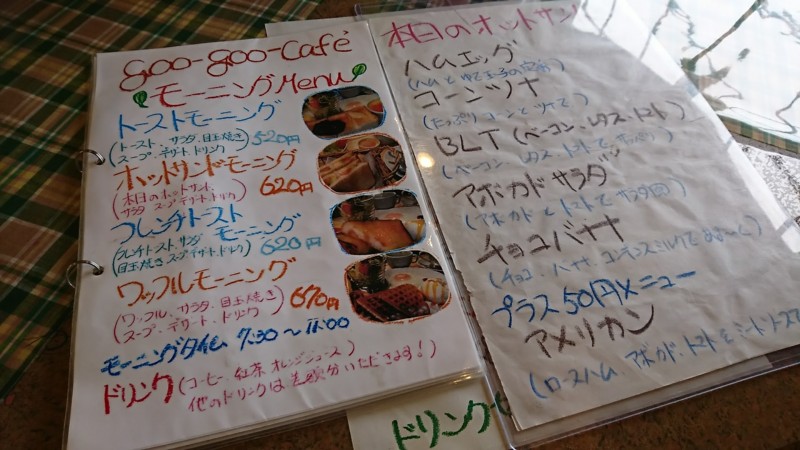 goo-goo-Café
モーニングMenu
トーストモーニング
(トースト、サラダ、目玉焼き
スープ、デザート、ドリンク) 520円
ホットサンドモーニング
(本日のホットサンド、
サラダ、スープ、デザート、ドリンク) 620円
フレンチトースト
モーニング
(フレンチトースト、サラダ
目玉焼き、スープ、デザート、ドリンク) 620円
ワッフルモーニング
(ワッフル、サラダ、目玉焼き
スープ、デザート、ドリンク) 670円
モーニングタイム 7:30〜11:00
ドリンク (コーヒー、紅茶、オレンジジュース)
他のドリンクは差額分いただきます!)
本日のホットサンド
ハムエッグ
(ハムとゆで玉子の定番)
コーンツナ
(たっぷりコーンとツナで)
BLT (ベーコン、レタス、トマト)
(ベーコン、レタス、トマトで
アボカドサラダ
(アボカドとトマトでサラダ風)
チョコバナナ
(チョコ、バナナ、コンデンスミルクで
プラス50円メニュー
アメリカン
(ロースハム、アボカド、トマトを
ドリンク